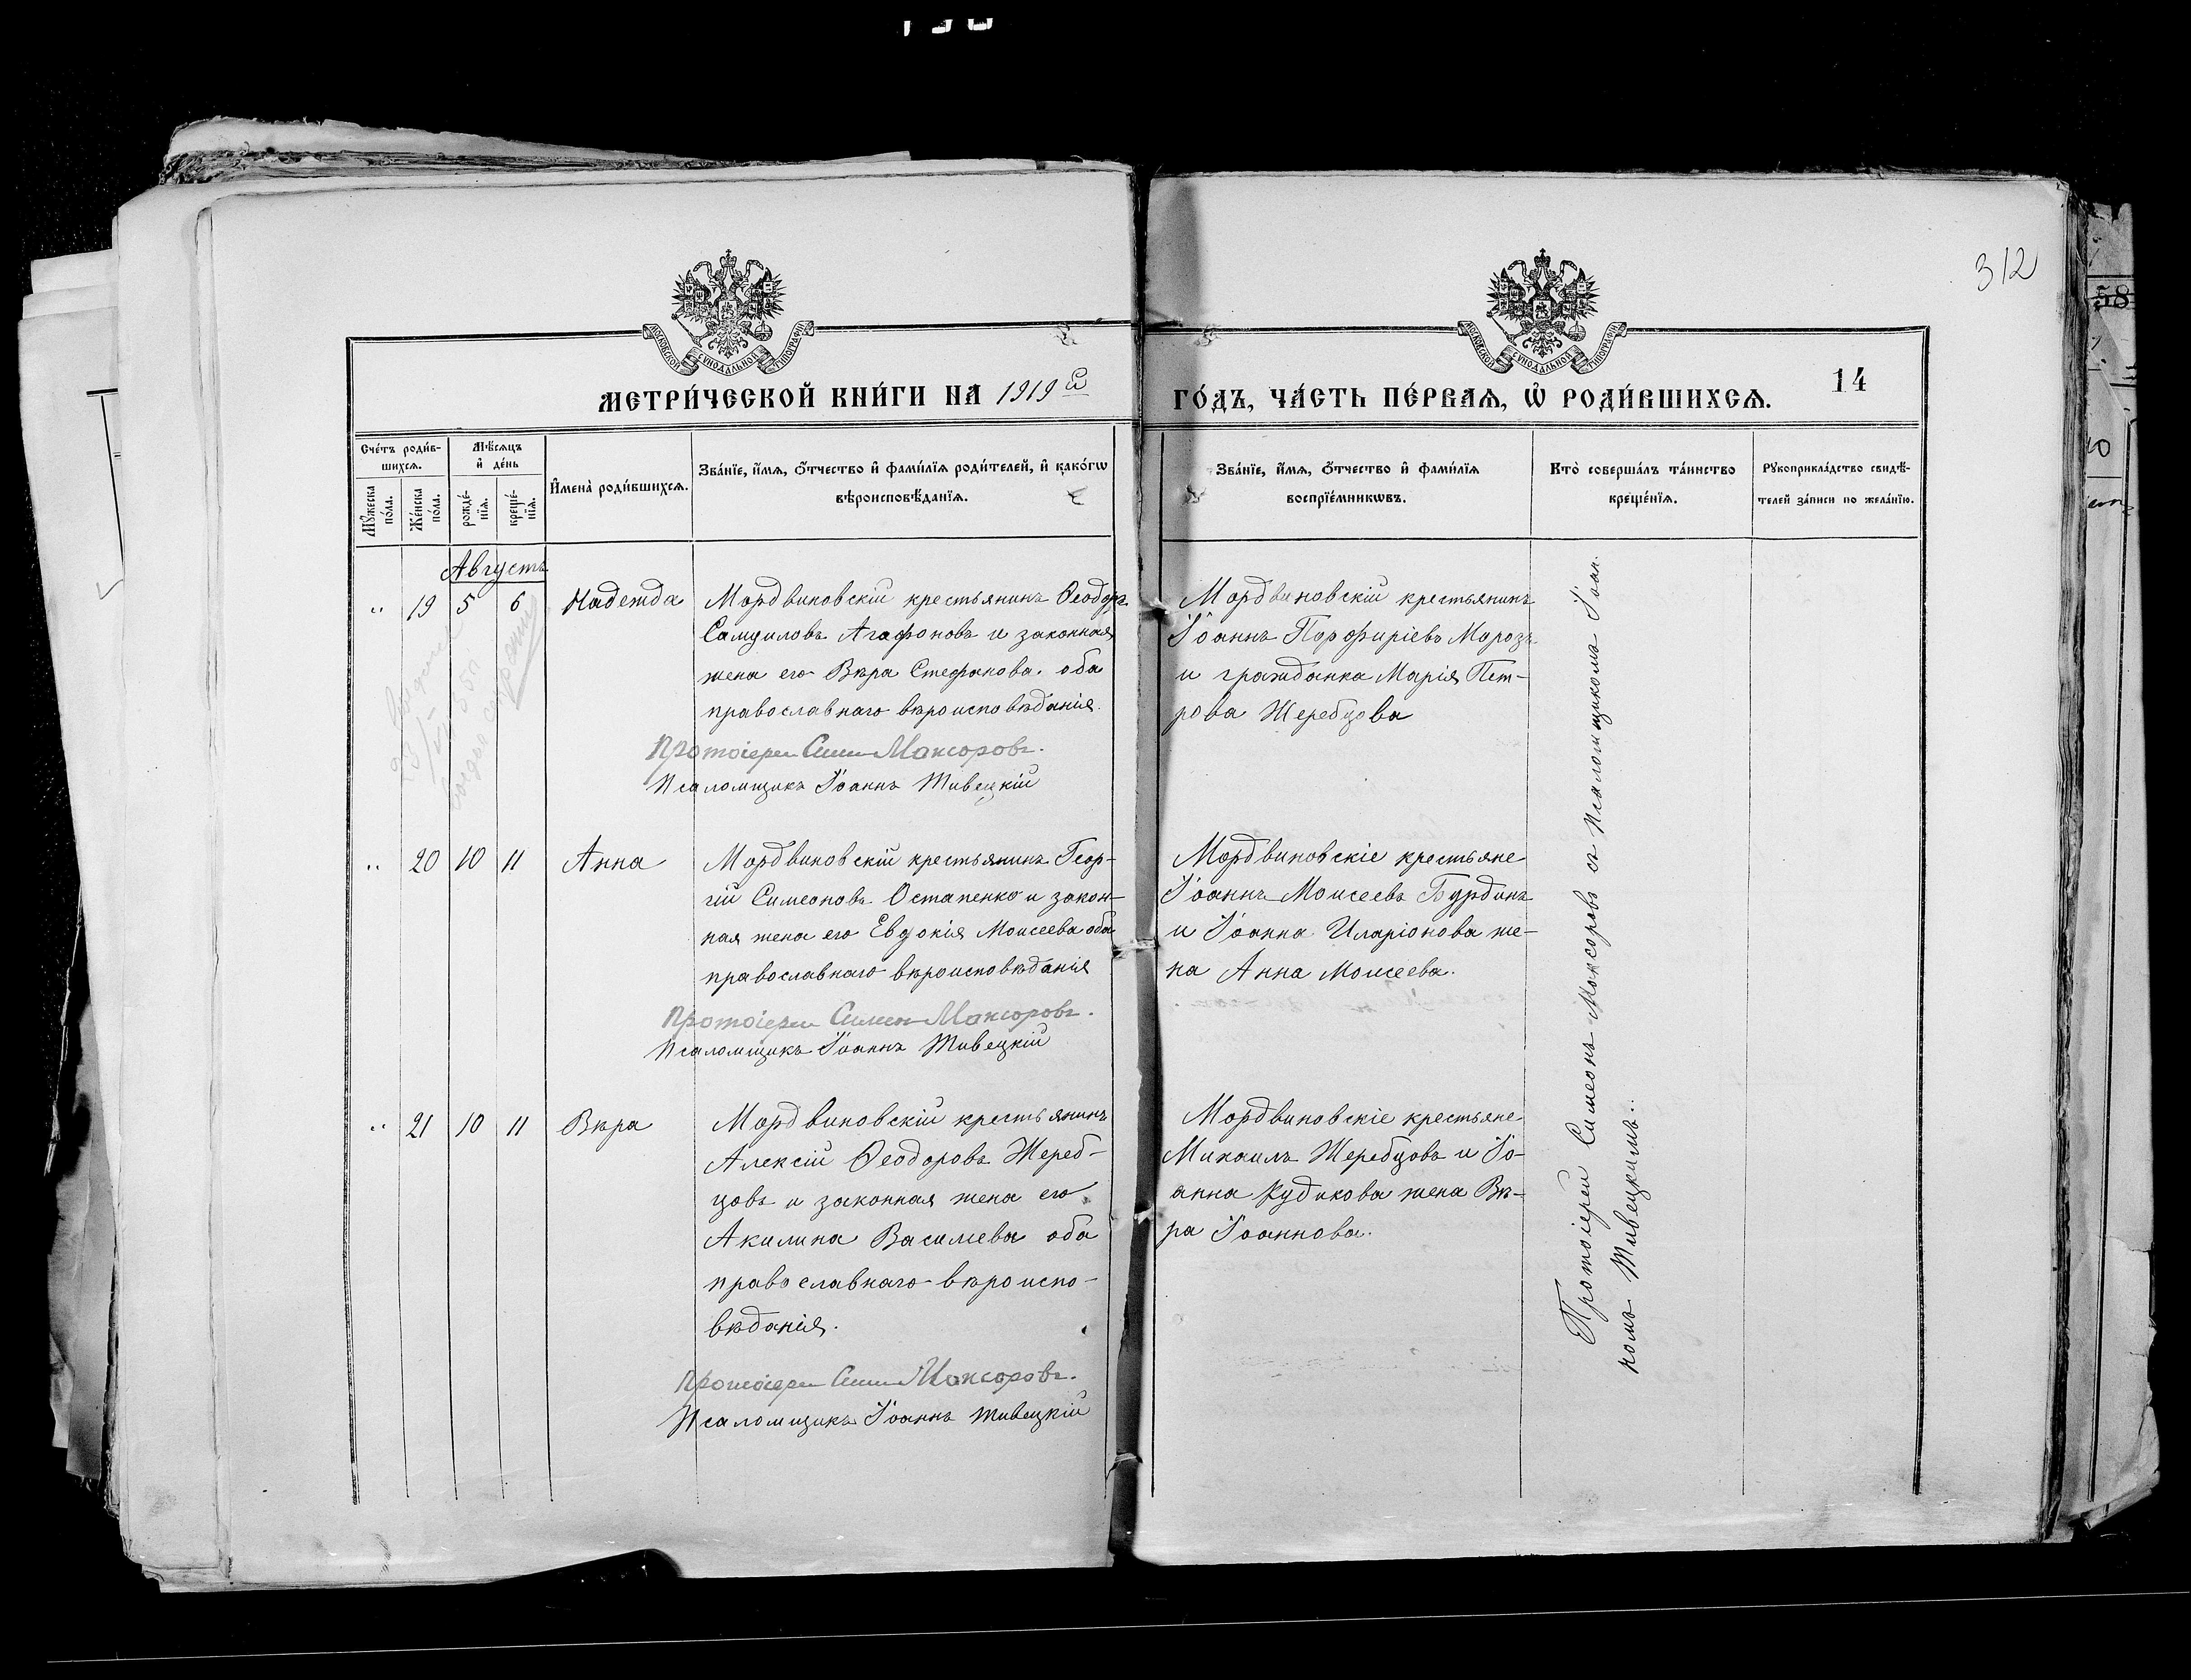 312
МЕТРИ́ЧЕСКОЙ КНИ́ГИ НА 1919й
ГО́ДЪ, ЧА́СТЬ ПЕ́РВАЯ, Ѡ҆ РОДИ́ВШИХСЯ.
14
Сче́тъ роди́в-
шихся.
Мѣ́сяцъ
и҆ де́нь
Мꙋ́жеска
по́ла.
Же́нска
по́ла.
рожде́-
нїя.
креще́-
нїя.
И҆мена̀ роди́вшихся.
Зва́нїе, и҆́мя, ѻ҆́тчество и҆ фами́лїя роди́телей, и҆ како́гѡ
вѣроисповѣ́данїя.
Зва́нїе, и҆́мя, ѻ҆́тчество и҆ фами́лїя
воспрїе́мникѡвъ.
Кто̀ соверша́лъ та́инство
креще́нїя.
Рꙋкоприкла́дство свидѣ́-
телей за́писи по жела́нїю.
Августъ
„ 19 5 6 Надежда
Мордвиновскій крестьянинъ Ѳеодоръ
Самуиловъ Агафоновъ и законная
жена его Вѣра Стефанова. оба
православнаго вѣроисповѣданія.
Протоіерей Симеон Моксоровъ.
Псаломщикъ Іоаннъ Тивецкій
Мордвиновскій крестьянинъ
Іоаннъ Порфиріевъ Морозъ
и гражданка Марія Пет-
рова Жеребцова
„ 20 10 11 Анна
Мордвиновскій крестьянинъ Геор-
гій Симеоновъ Остапенко и закон-
ная жена его Евдокія Моисеева оба
православнаго вѣроисповѣданія
Протоіерей Симеон Моксоровъ.
Псаломщикъ Іоаннъ Тивецкій
Мордвиновскіе крестьяне
Іоаннъ Моисеевъ Бурдинъ
и Іоанна Иларіонова же-
на Анна Моисеева.
„ 21 10 11 Вѣра
Мордвиновскій крестьянинъ
Алексій Ѳеодоровъ Жереб-
цовъ и законная жена его
Акилина Васильева оба
православнаго вѣроиспо-
вѣданія.
Протоіерей Симеон Моксоровъ.
Псаломщикъ Іоаннъ Тивецкій
Мордвиновскіе крестьяне
Михаилъ Жеребцовъ и Іо-
анна Кудикова жена Вѣ-
ра Іоаннова.
Протоіерей Симеонъ Моксоровъ съ псаломщикомъ Іоан-
номъ Тивецкимъ.